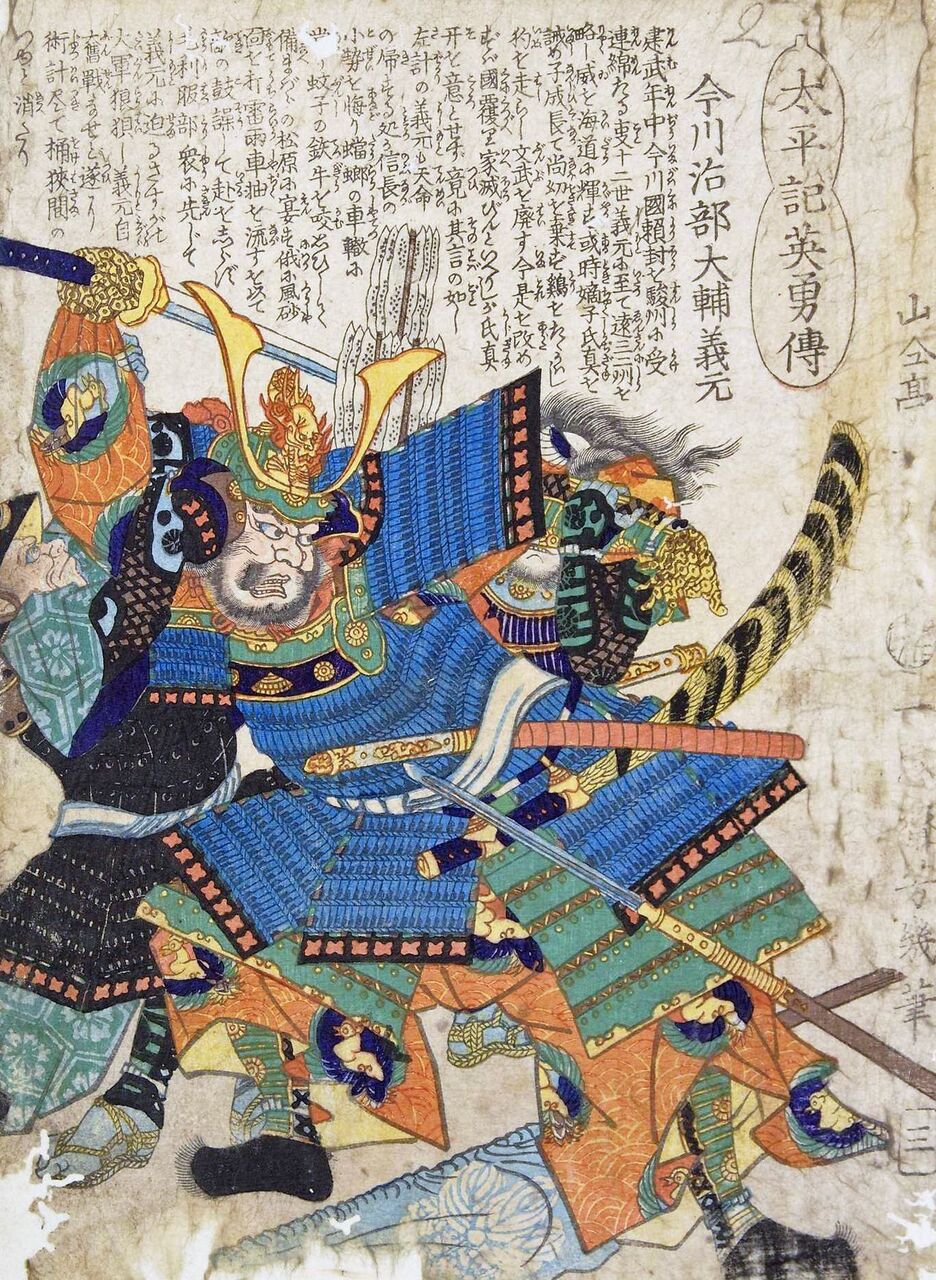 太平記英勇傳
今川治部大輔義元
建武年中今川國頼封を駿州に受
連綿たる支十二世義元に至て遠三州を
略し威を海道に輝す或時嫡子氏真を
誡め子成長て尚幼を乗せ鶏を
狗を走らし文武を廃す今是を改め
ずバ國覆り家滅びんといへども氏真
開を意とせず竟に其言の如し
左計の義元も天命
の帰する処か信長の
小勢を侮り蟷螂の車轍に
當り蚊子の鉄牛を咬
備まばらの松原に宴す俄に風砂
面を打雷雨車軸を流すを以て
の鼓譟して赴をしらず
毛利服部衆に先じて
義元に迫るさすが
大軍狼狽し義元自
奮戰ませども遂に
術計尽て桶狭間の
消たり
一蕙齋芳幾筆